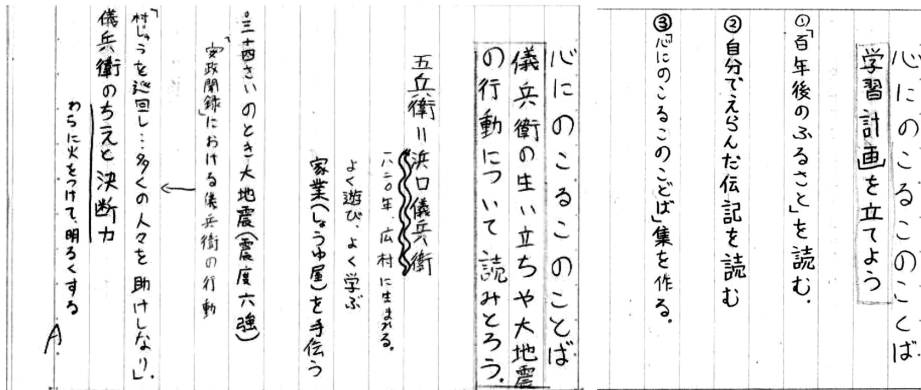 心にのこるこのことば
学習計画を立てよう
①「百年後のふるさと」を読む。
②自分でえらんだ伝記を読む
③「心にのこるこのことば」集を作る。
心にのこるこのことば
儀兵衛の生い立ちや大地震
の行動について読みとろう。
五兵衛=浜口儀兵衛
一八二〇年、広村に生まれる。
よく遊び、よく学ぶ
家業(しょうゆ屋)を手伝う
三十四さいのとき大地震(震度六強)
「安政聞録」における儀兵衛の行動
「村じゅうを巡回し…多くの人々を助けしなり」。
儀兵衛のちえと決断力
わらに火をつけて、明るくする
A